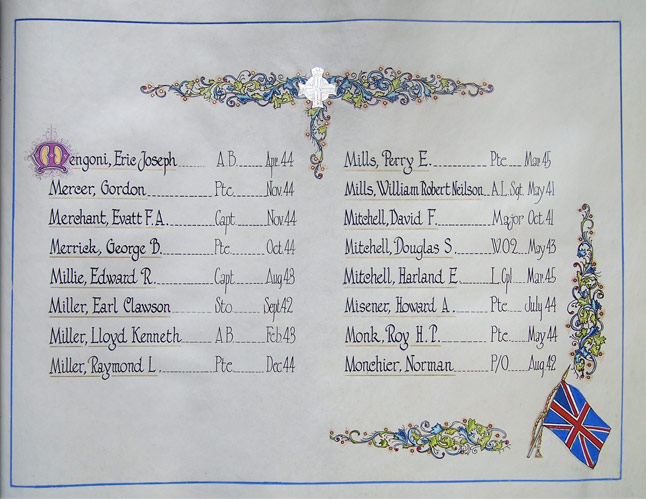 Mengoni, Eric Joseph A.B. Apr. 44
Mercer, Gordon Pte. Nov. 44
Merchant, Evatt F.A. Capt. Nov. 44
Merrick, George B. Pte. Oct. 44
Millie, Edward R. Capt. Aug. 43
Miller, Earl Clawson Sto. Sept. 42
Miller, Lloyd Kenneth A.B. Feb. 43
Miller, Raymond L. Pte. Dec. 44
Mills, Perry E. Pte. Mar. 45
Mills, William Robert Neilson A.L. Sgt. May 41
Mitchell, David F. Major Oct. 41
Mitchell, Douglas S. W.O.2. May 43
Mitchell, Harland E. L. Cpl. Mar. 45
Misener, Howard A. Pte. July 44
Monk, Roy H. P. Pte. May 44
Monchier, Norman P/O Aug. 42